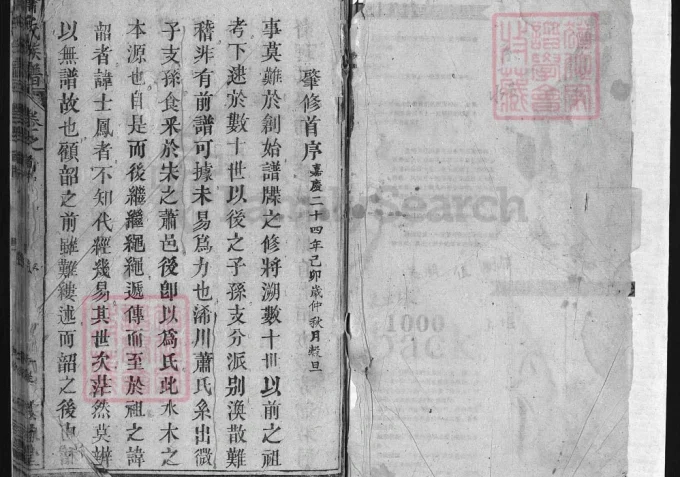 肇修首序 嘉慶二十四年己卯歲仲秋月穀旦
事莫難於創始譜牒之修將溯數十世以前之祖
考下逮於數十世以後之子孫支分派别渙散難
稽非有前譜可據未易爲力也浠川蕭氏系出微
子支孫食采於宋之蕭邑後卽以爲氏此水木之
本源也自是而後繼繼繩繩遞傳而至於祖之諱
韶者諱士鳳者不知代經幾易其世次茫然莫辨
以無譜故也顧韶之前雖難縷述而韶之後也
Search
1000